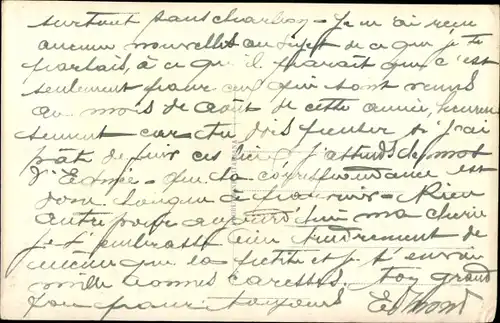 surtout sans charbon – Je n'ai reçu
aucune nouvelles au sujet de ce que je te
parlais, à ce qu'il paraît que c'est
seulement pour ceux qui sont venus
au mois de Août de cette année, heureu
sement car tu dois penser si j'ai
hâte de fuir ces lieux j'attends de mot
d' – que ta correspondance est
donc longue à – Rien
autre pour aujourd'hui ma cherie
je t'embrasse bien tendrement de
même que la petite et je t'envoie
mille bonnes caresses. ton grand
fou pour toujours Edmond